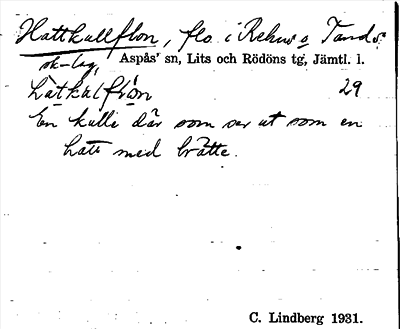 Hattkullflon, flo i Rehus o Tands
sk-lag, Aspås' sn, Lits och Rödöns tg, Jämtl. l.
hatkulflon 29
En kulle där som ser ut som en
hatt med brätte.
C. Lindberg 1931.